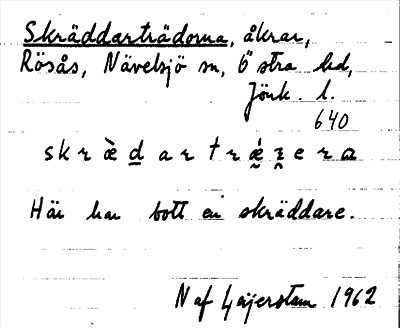 Skräddarträdorna, åkrar,
Rösås, Nävelsjö sn, Östra hd,
Jönk. l.
640
skràd̲artrǽ̰ʒ̯erɷ
Här har bott en skräddare.
N af Geijerstam 1962